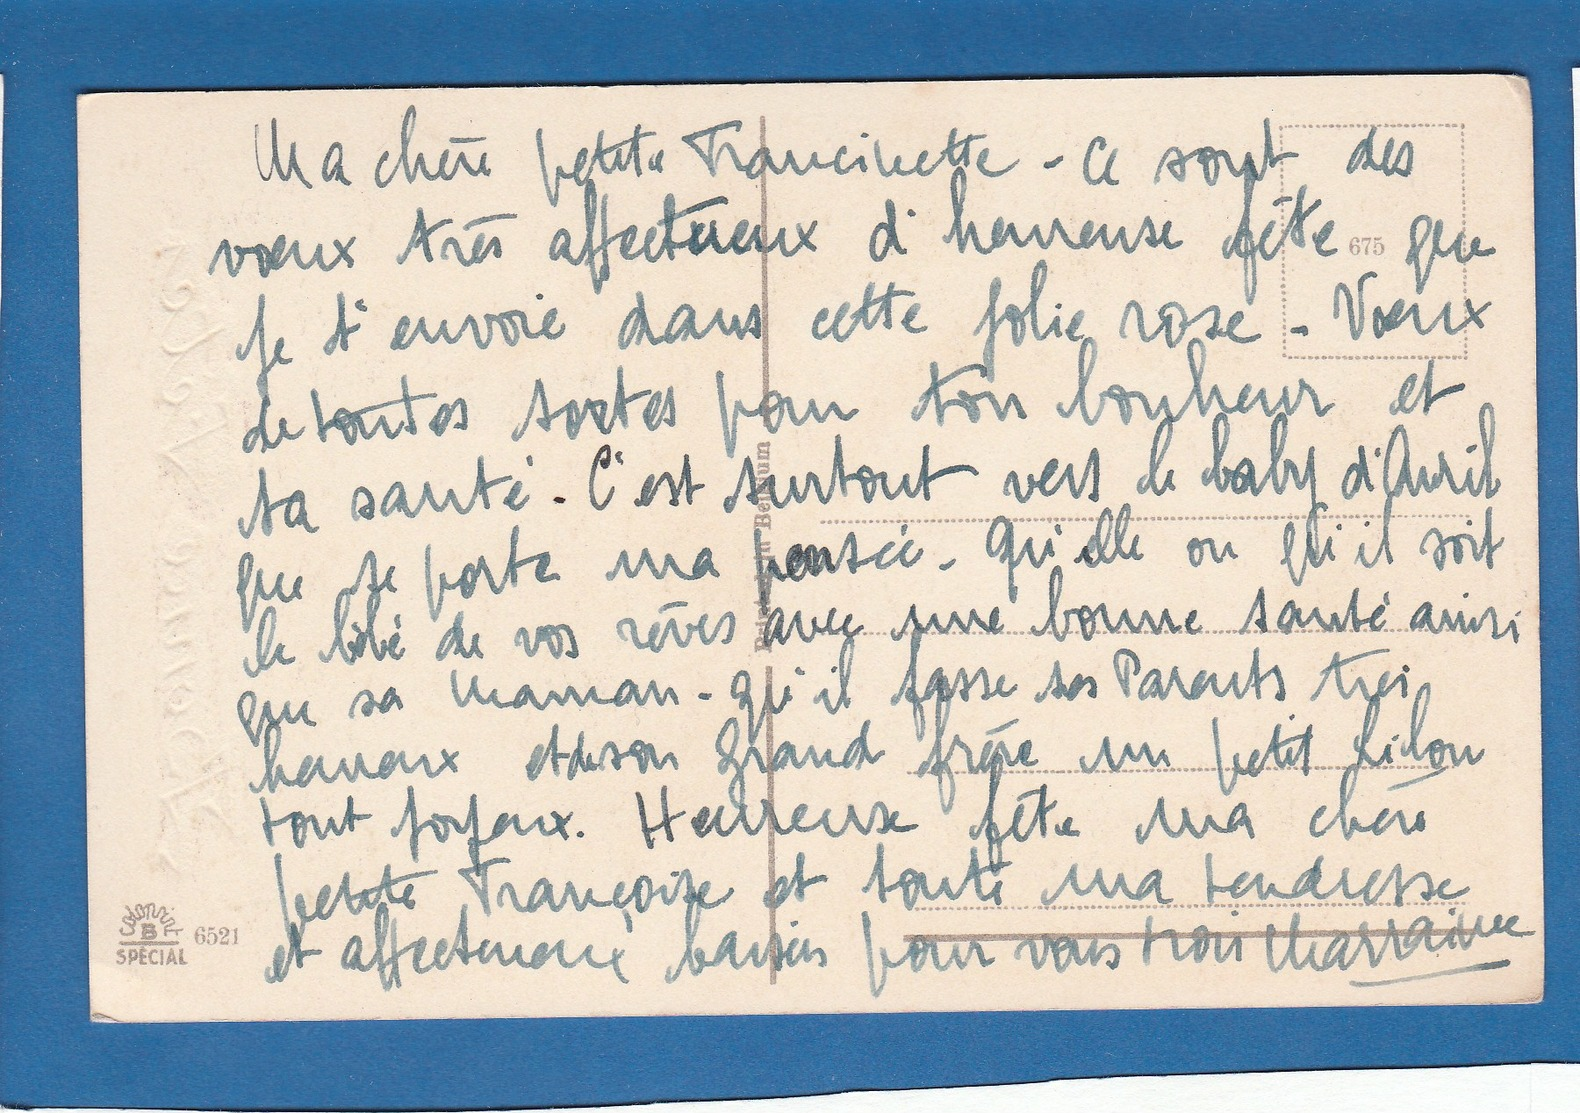 Ma chère petite Francinette - Ce sont des
voeux très affectueux d'heureuse fête que
je t'envoie dans cette jolie rose - Voeux
de toutes sortes pour ton bonheur et
ta santé - C'est surtout vers le baby d'Avril
que se porte ma pensée - Qu'elle ou qu'il soit
le bébé de vos rêves avec une bonne santé ainsi
que sa Maman - qu'il fasse ses Parents très
heureux et de son grand frère un petit
tout joyeux. Heureuse fête ma chère
petite Françoise et toute ma tendresse
et affectueux baisers pour vous trois Marraine
675
Printed in Belgium
Colorprint
B
SPÉCIAL 6521